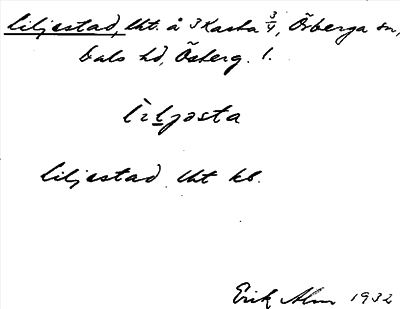 Liljestad, lht. å 3 Kasta 3/4, Örberga sn,
Dals hd, Österg. l.
lìljesta
Liljestad lht kb.
Erik Alm 1932